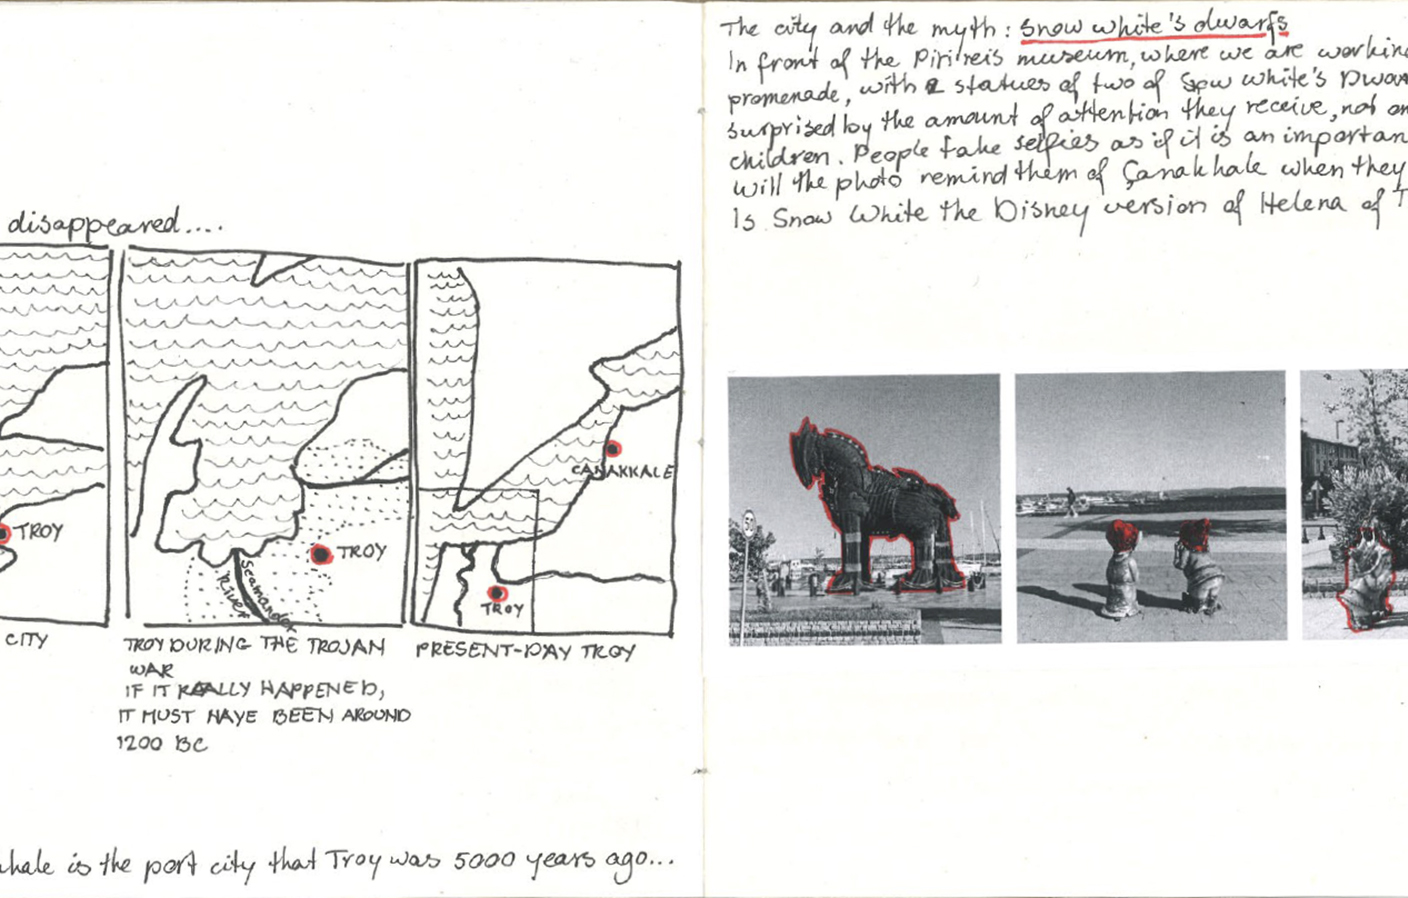 disappeared....
TROY
CITY
Scamander
River
TROY
TROY DURING THE TROJAN
WAR
IF IT REALLY HAPPENED,
IT MUST HAVE BEEN AROUND
1200 BC
ÇANAKKALE
TROY
PRESENT-DAY TROY
hale is the port city that Troy was 5000 years ago...
The city and the myth: Snow white's dwarfs
In front of the Piri reis museum, where we are working
promenade, with 2 statues of two of Snow white's Dwar
surprised by the amount of attention they receive, not on
children. People take selfies as if it is an importan
will the photo remind them of Çanakhale when they
Is Snow White the Disney version of Helena of T